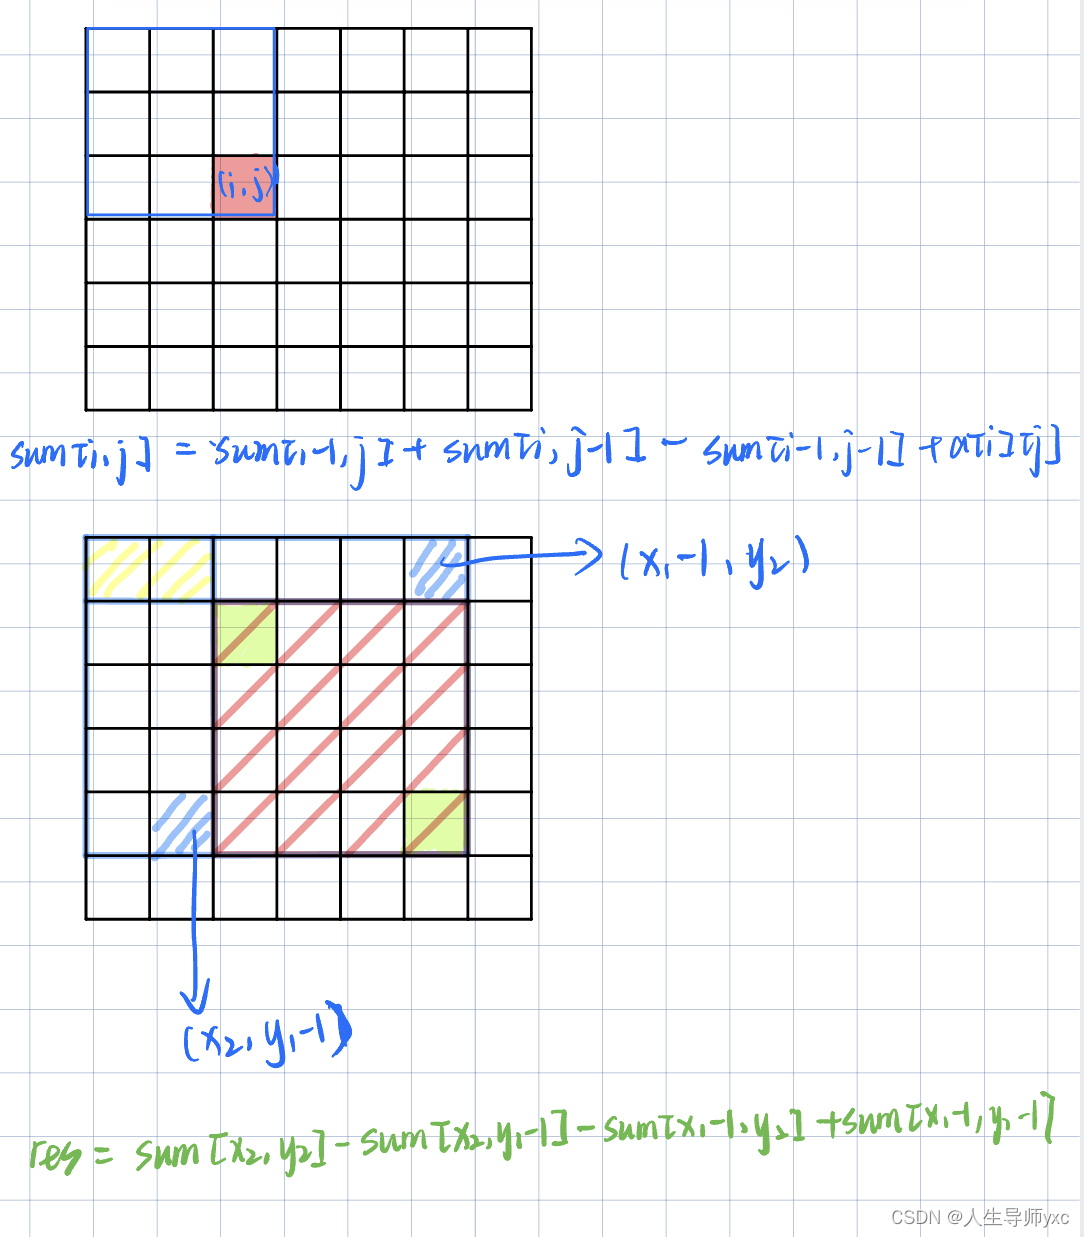 (i,j)
sum[i,j] = sum[i-1,j] + sum[i,j-1] - sum[i-1,j-1] + a[i][j]
(x₁-1, y₂)
(x₂, y₁-1)
res = sum[x₂,y₂] - sum[x₂,y₁-1] - sum[x₁-1,y₂] + sum[x₁-1,y₁-1]
CSDN @人生导师yxc